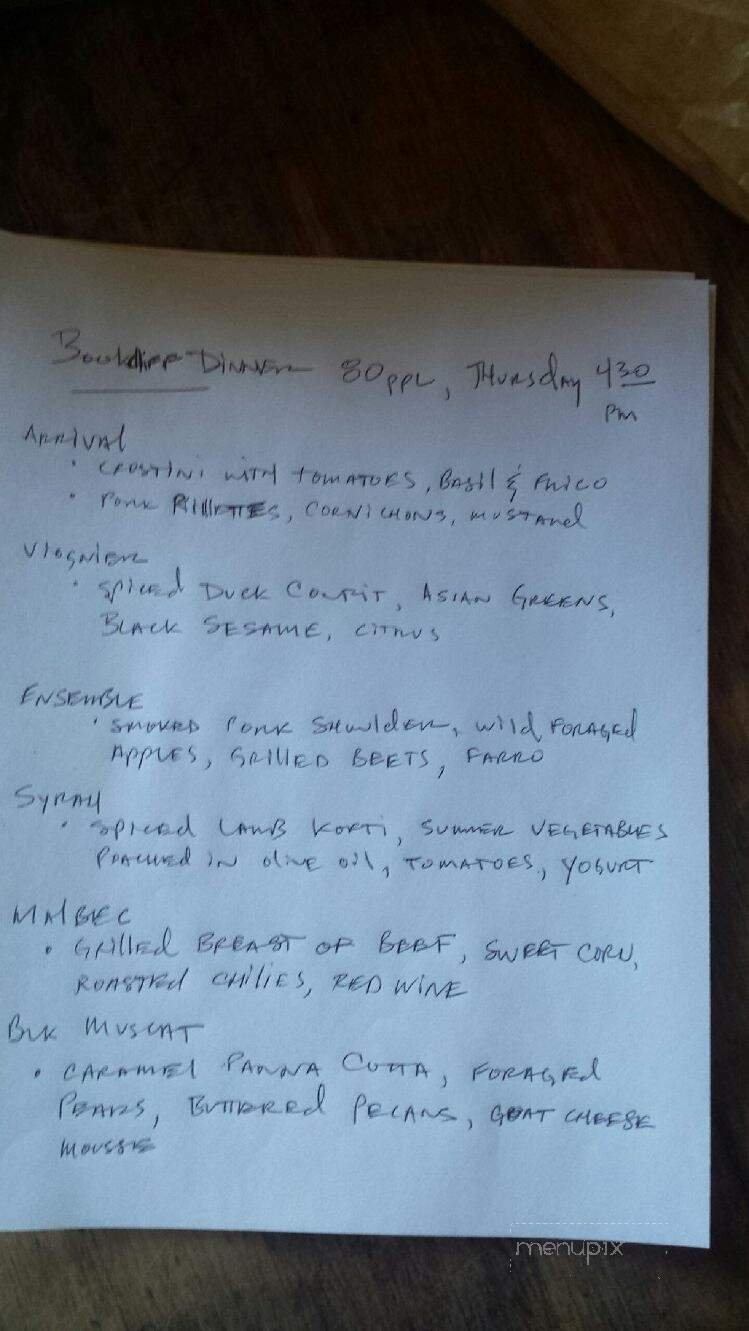 Bookcliff Dinner 80ppl, Thursday 430
pm
Arrival
• Crostini with tomatoes, Basil & Frico
• Pork Rillettes, Cornichons, mustard
Viognier
• Spiced Duck Confit, Asian Greens,
Black Sesame, citrus
Ensemble
• Smoked Pork Shoulder, wild Foraged
Apples, Grilled Beets, Farro
Syrah
• Spiced Lamb, Summer Vegetables
Poached in olive oil, tomatoes, yogurt
Malbec
• Grilled Breast of Beef, Sweet Corn,
Roasted Chilies, Red Wine
Blk Muscat
• Caramel Panna Cotta, Foraged
Pears, Buttered Pecans, Goat Cheese
Mousse
menupix